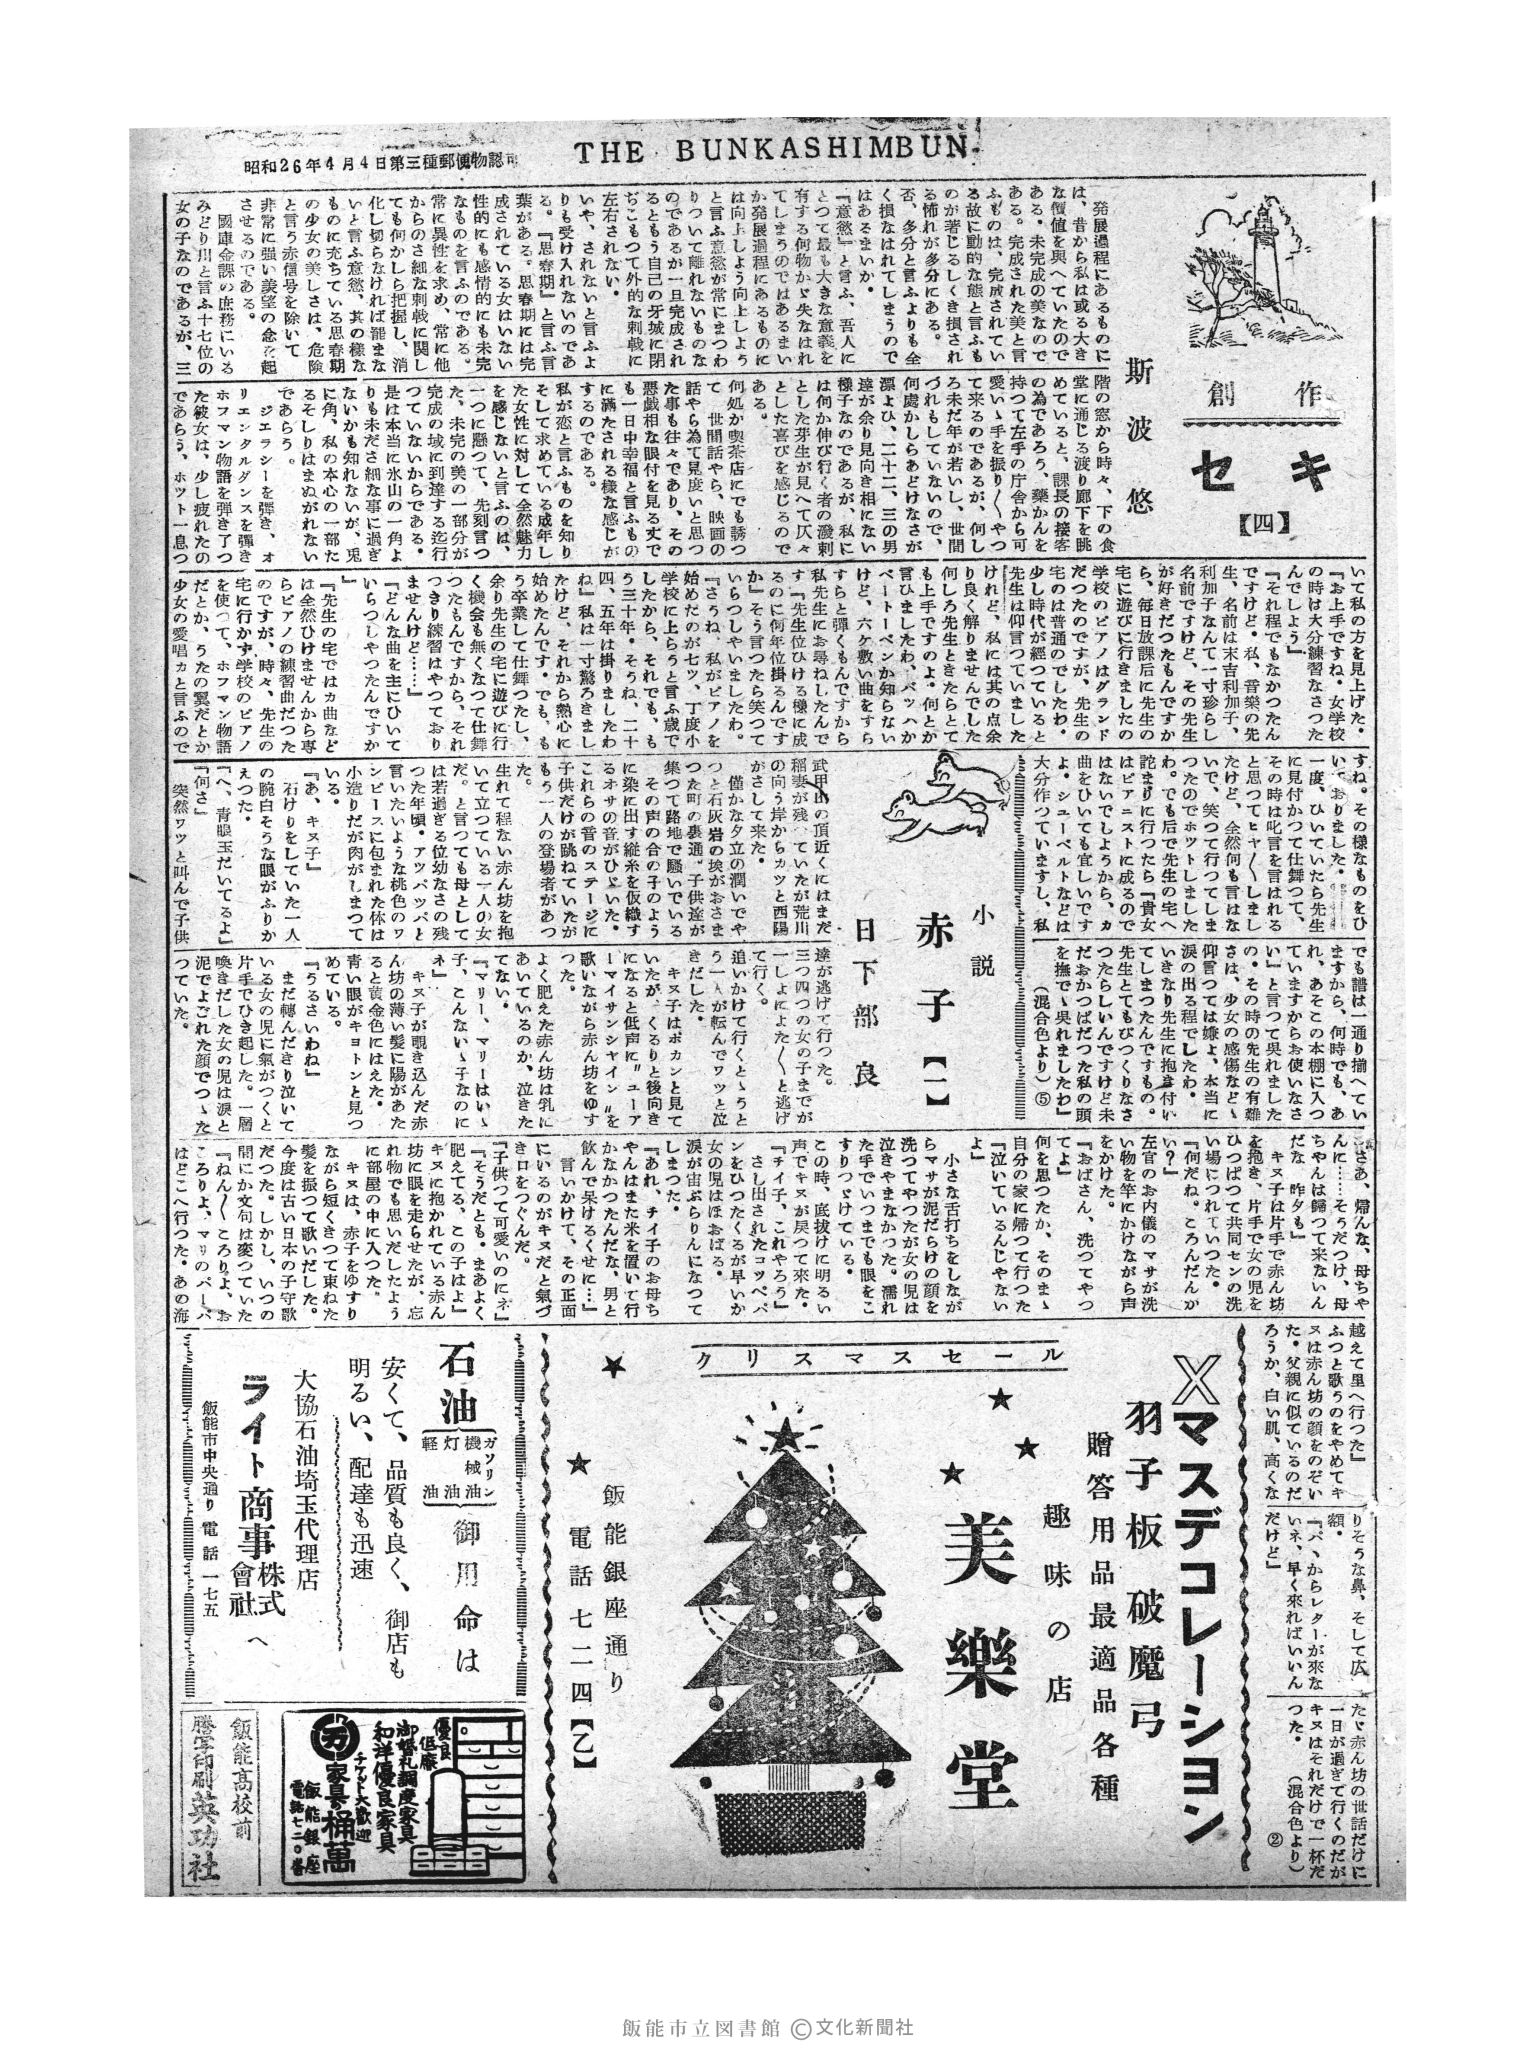 昭和26年4月4日第三種郵便物認可
THE BUNKASHIMBUN
創作
セキ
【四】
斯波悠
発展過程にあるものに
は、昔から私は或る大き
な價値を興へていたので
ある。未完成の美なので
ある。完成された美と言
ふものは、完成されてい
る故に動的な態と言ふも
のが著じるしくき損され
る怖れが多分にある。
否、多分と言ふよりも全
く損なはれてしまうので
はあるまいか。
『意慾』と言ふ、吾人に
とつて最も大きな意義を
有する何物かゞ失なはれ
てしまうのではあるまい
か発展過程にあるものに
は向上しよう向上しよう
と言ふ意慾が常にまつわ
りついて離れないものな
のであるが一旦完成され
るともう自己の牙城に閉
ぢこもつて外的な刺戟に
左右されない。
いや、されないと言ふよ
りも受け入れないのであ
る。『思春期』と言ふ言
葉がある。思春期には完
成されている女はいない
性的にも感情的にも未完
なものを言ふのである。
常に異性を求め、常に他
からのさ細な刺戟に関し
ても何かしら把握し、消
化し切らなければ罷まな
いと言ふ意慾、其の様な
ものに充ちている思春期
の少女の美しさは、危険
と言う赤信号を除いて
非常に強い羨望の念を起
させるのである。
國庫金課の庶務にいる
みどり川と言ふ十七位の
女の子なのであるが、三
階の窓から時々、下の食
堂に通じる渡り廊下を眺
めていると、課長の接客
の為であろう、藥かんを
持つて左手の庁舎から可
愛いゝ手を振り〱やつ
て来るのであるが、何し
ろ未だ年が若いし、世間
づれもしていないので、
何處かしらあどけなさが
漂よひ、二十二、三の男
達が余り見向き相にない
様子なのであるが、私に
は何か伸び行く者の溌剌
とした芽生が見へて仄々
とした喜びを感じるので
ある。
何処か喫茶店にでも誘つ
て　世間話やら、映画の
話やら為て見度いと思つ
た事も往々であり、その
悪戯相な眼付を見る丈で
も一日中幸福と言ふもの
に満たされる様な感じが
するのである。
私が恋と言ふものを知り
そして求めている成年し
た女性に対して全然魅力
を感じないと言ふのは、
一つに懸つて、先刻言つ
た、未完の美の一部分が
完成の域に到達する迄行
つていないからである。
是は本当に氷山の一角よ
りも未ださ細な事に過ぎ
ないかも知れないが、兎
に角、私の本心の一部た
るそしりはまぬがれない
であらう。
ジエラシーを弾き、オ
リエンタルダンスを弾き
ホフマン物語を弾き了つ
た彼女は、少し疲れたの
であらう、ホツト一息つ
いて私の方を見上げた。
『お上手ですね。女学校
の時は大分練習なさつた
んでしよう』
『それ程でもなかつたん
ですけど。私、音樂の先
生、名前は末吉利加子、
利加子なんて一寸珍らし
名前ですけど、その先生
が好きだつたもんですか
ら、毎日放課后に先生の
宅に遊びに行きましたの
学校のピアノはグランド
だつたのですが、先生の
宅のは普通のでしたわ。
少し時代が經つていると
先生は仰言つていました
けれど、私には其の点余
り良く解りませんでした
何しろ先生ときたらとて
も上手ですのよ。何とか
言ひましたわ、バツハか
ベートーベンか知らない
けど、六ケ敷い曲をすら
すらと弾くもんですから
私先生にお尋ねしたんで
す『先生位ひける様に成
るのに何年位掛るんです
か』そう言つたら笑つて
いらつしやいましたわ。
『さうね、私がピアノを
始めだのが七ツ、丁度小
学校に上らうと言ふ歳で
したから、それでも、も
う三十年。そうね、二十
四、五年は掛りましたわ
ね』私は一寸驚ろきまし
たけど、それから熱心に
始めたんです。でも、も
う卒業して仕舞つたし、
余り先生の宅に遊びに行
く機会も無くなつて仕舞
つたもんですから、それ
つきり練習はやつており
ませんけど……』
『どんな曲を主にひいて
いらつしやつたんですか
』
『先生の宅ではカ曲など
は全然ひけませんから専
らピアノの練習曲だつた
のですが、時々、先生の
宅に行かず学校のピアノ
を使つて、ホフマン物語
だとか、うたの翼だとか
少女の愛唱カと言ふので
すね。その様なものをひ
いでおりました。
一度、ひいていたら先生
に見付かつて仕舞つて、
その時は叱言を言はれる
と思つてヒヤ〱しまし
たけど、全然何も言はな
いで、笑つて行つてしま
つたのでホツトしました
わ。でも后で先生の宅へ
詫まりに行つたら『貴女
はピアニストに成るので
はないでしようから、カ
曲をひいても宜しいです
よ。シユーベルトなどは
大分作つていますし、私
でも譜は一通り揃へてい
ますから、何時でも、あ
れ、あそこの本棚に入つ
ていますからお使いなさ
い』と言つて呉れました
の。その時の先生の有難
さは、少女の感傷などゝ
仰言つては嫌よ、本当に
涙の出る程でしたわ。
いきなり先生に抱き付い
てしまつたんですもの。
先生とてもびつくりなさ
つたらしいんですけど未
だおかつぱだつた私の頭
を撫でゝ呉れましたわ』
（混合色より）⑤
小説
赤子【一】
日下部良
武甲山の頂近くにはまだ
稲妻が残つていたが荒川
の向う岸からカツと西陽
がさして来た。
僅かな夕立の潤いでや
つと石灰岩の埃がおさま
つた町の裏通。子供達が
集つて路地で騒いでいる
その声の合の子のよう
に染に出す縦糸を仮織す
るオサの音がひゞいた。
これらの音のステージに
子供だけが跳ねていたが
もう一人の登場者があつ
た。
生れて程ない赤ん坊を抱
いて立つている一人の女
だ。と言つても母として
は若過ぎる位幼なさの残
つた年頃。アツパツパと
言いたいような桃色のワ
ンピースに包まれた体は
小造りだが肉がしまつて
いる。
『あ、キヌ子』
石けりをしていた一人
の腕白そうな眼がふりか
えつた。
『へ、青眼玉だいてるよ』
『何さ』
突然ワツと叫んで子供
達が逃げて行つた。
三つ四つの女の子までが
一しよによた〱と逃げ
て行く。
追いかけて行くとゝうと
う一人が転んでワツと泣
きだした。
キヌ子はポカンと見て
いたが、くるりと後向き
になると低声に〝ユーア
ーマイサンシヤイン〟を
歌いながら赤ん坊をゆす
つた。
よく肥えた赤ん坊は乳に
あいているのか、泣きた
てない。
『マリー、マリーはいゝ
子、こんないゝ子なのに
ネ』
キヌ子が覗き込んだ赤
ん坊の薄い髪に陽があた
ると黄金色にはえた。
青い眼がキヨトンと見つ
めている。
『うるさいわね』
まだ轉んだきり泣いて
いる女の児に氣がつくと
片手でひき起した。一層
喚きだした女の児は涙と
泥でよごれた顔でつゝた
つていた。
『さあ、帰んな、母ちや
んに……そうだつけ、母
ちやんは歸つて来ないん
だな　昨夕も』
キヌ子は片手で赤ん坊
を抱き、片手で女の児を
ひつぱつて共同センの洗
い場につれていつた。
『何だね。ころんだんか
い？』
左官のお内儀のマサが洗
い物を竿にかけながら声
をかけた。
『おばさん、洗つてやつ
てよ』
何を思つたか、そのまゝ
自分の家に帰つて行つた
『泣いているんじやない
よ』
小さな舌打ちをしなが
らマサが泥だらけの顔を
洗つてやつたが女の児は
泣きやまなかつた。濡れ
た手でいつまでも眼をこ
すりつゞけている。
この時、底抜けに明るい
声でキヌが戻つて来た。
『チイ子、これやろう』
さし出されたコツペパ
ンをひつたくるが早いか
女の児はほおばる。
涙が宙ぶらりんになつて
しまつた。
『あれ、チイ子のお母ち
やんはまた米を置いて行
かなかつたんだな、男と
飲んで呆けるくせに…』
言いかけて、その正面
にいるのがキヌだと氣づ
き口をつぐんだ。
『子供つて可愛いのにネ』
『そうだとも。まあよく
肥えてる、この子はよ』
キヌに抱かれている赤ん
坊に眼を走らせたが、忘
れ物でも思いだしたよう
に部屋の中に入つた。
キヌは、赤子をゆすり
ながら短くきつて束ねた
髪を振つて歌いだした。
今度は古い日本の子守歌
だつた。しかし、いつの
間にか文句は変つていた
『ねん〱　ころりよ、お
ころりよ、マリのペーパ
はどこへ行つた。あの海
越えて里へ行つた』
ふつと歌うのをやめてキ
ヌは赤ん坊の顔をのぞい
た。父親に似ているのだ
ろうか、白い肌、高くな
りそうな鼻、そして広い
額。
『パヽからレターが來な
いネ、早く來ればいいん
だけど』
たゞ赤ん坊の世話だけに
一日が過ぎて行くのだが
キヌはそれだけで一杯だ
つた。　（混合色より）
②
Xマスデコレーション
羽子板　破魔弓
贈答用品最適品各種
趣味の店
美樂堂
クリスマスセール
飯能銀座通り
電話七二四【乙】
石油
ガソリン
機械油
灯油
軽油
御用命は
安くて、品質も良く、御店も
明るい、配達も迅速
大協石油埼玉代理店
ライト商事株式會社へ
飯能市中央通り　電話一七五
優良
低廉
御婚礼調度家具
和洋優良家具
チケット大歓迎
万
家具の桶萬
飯能銀座
電話七二〇番
飯能高校前
謄写印刷英功社
飯能市立図書館 ©文化新聞社